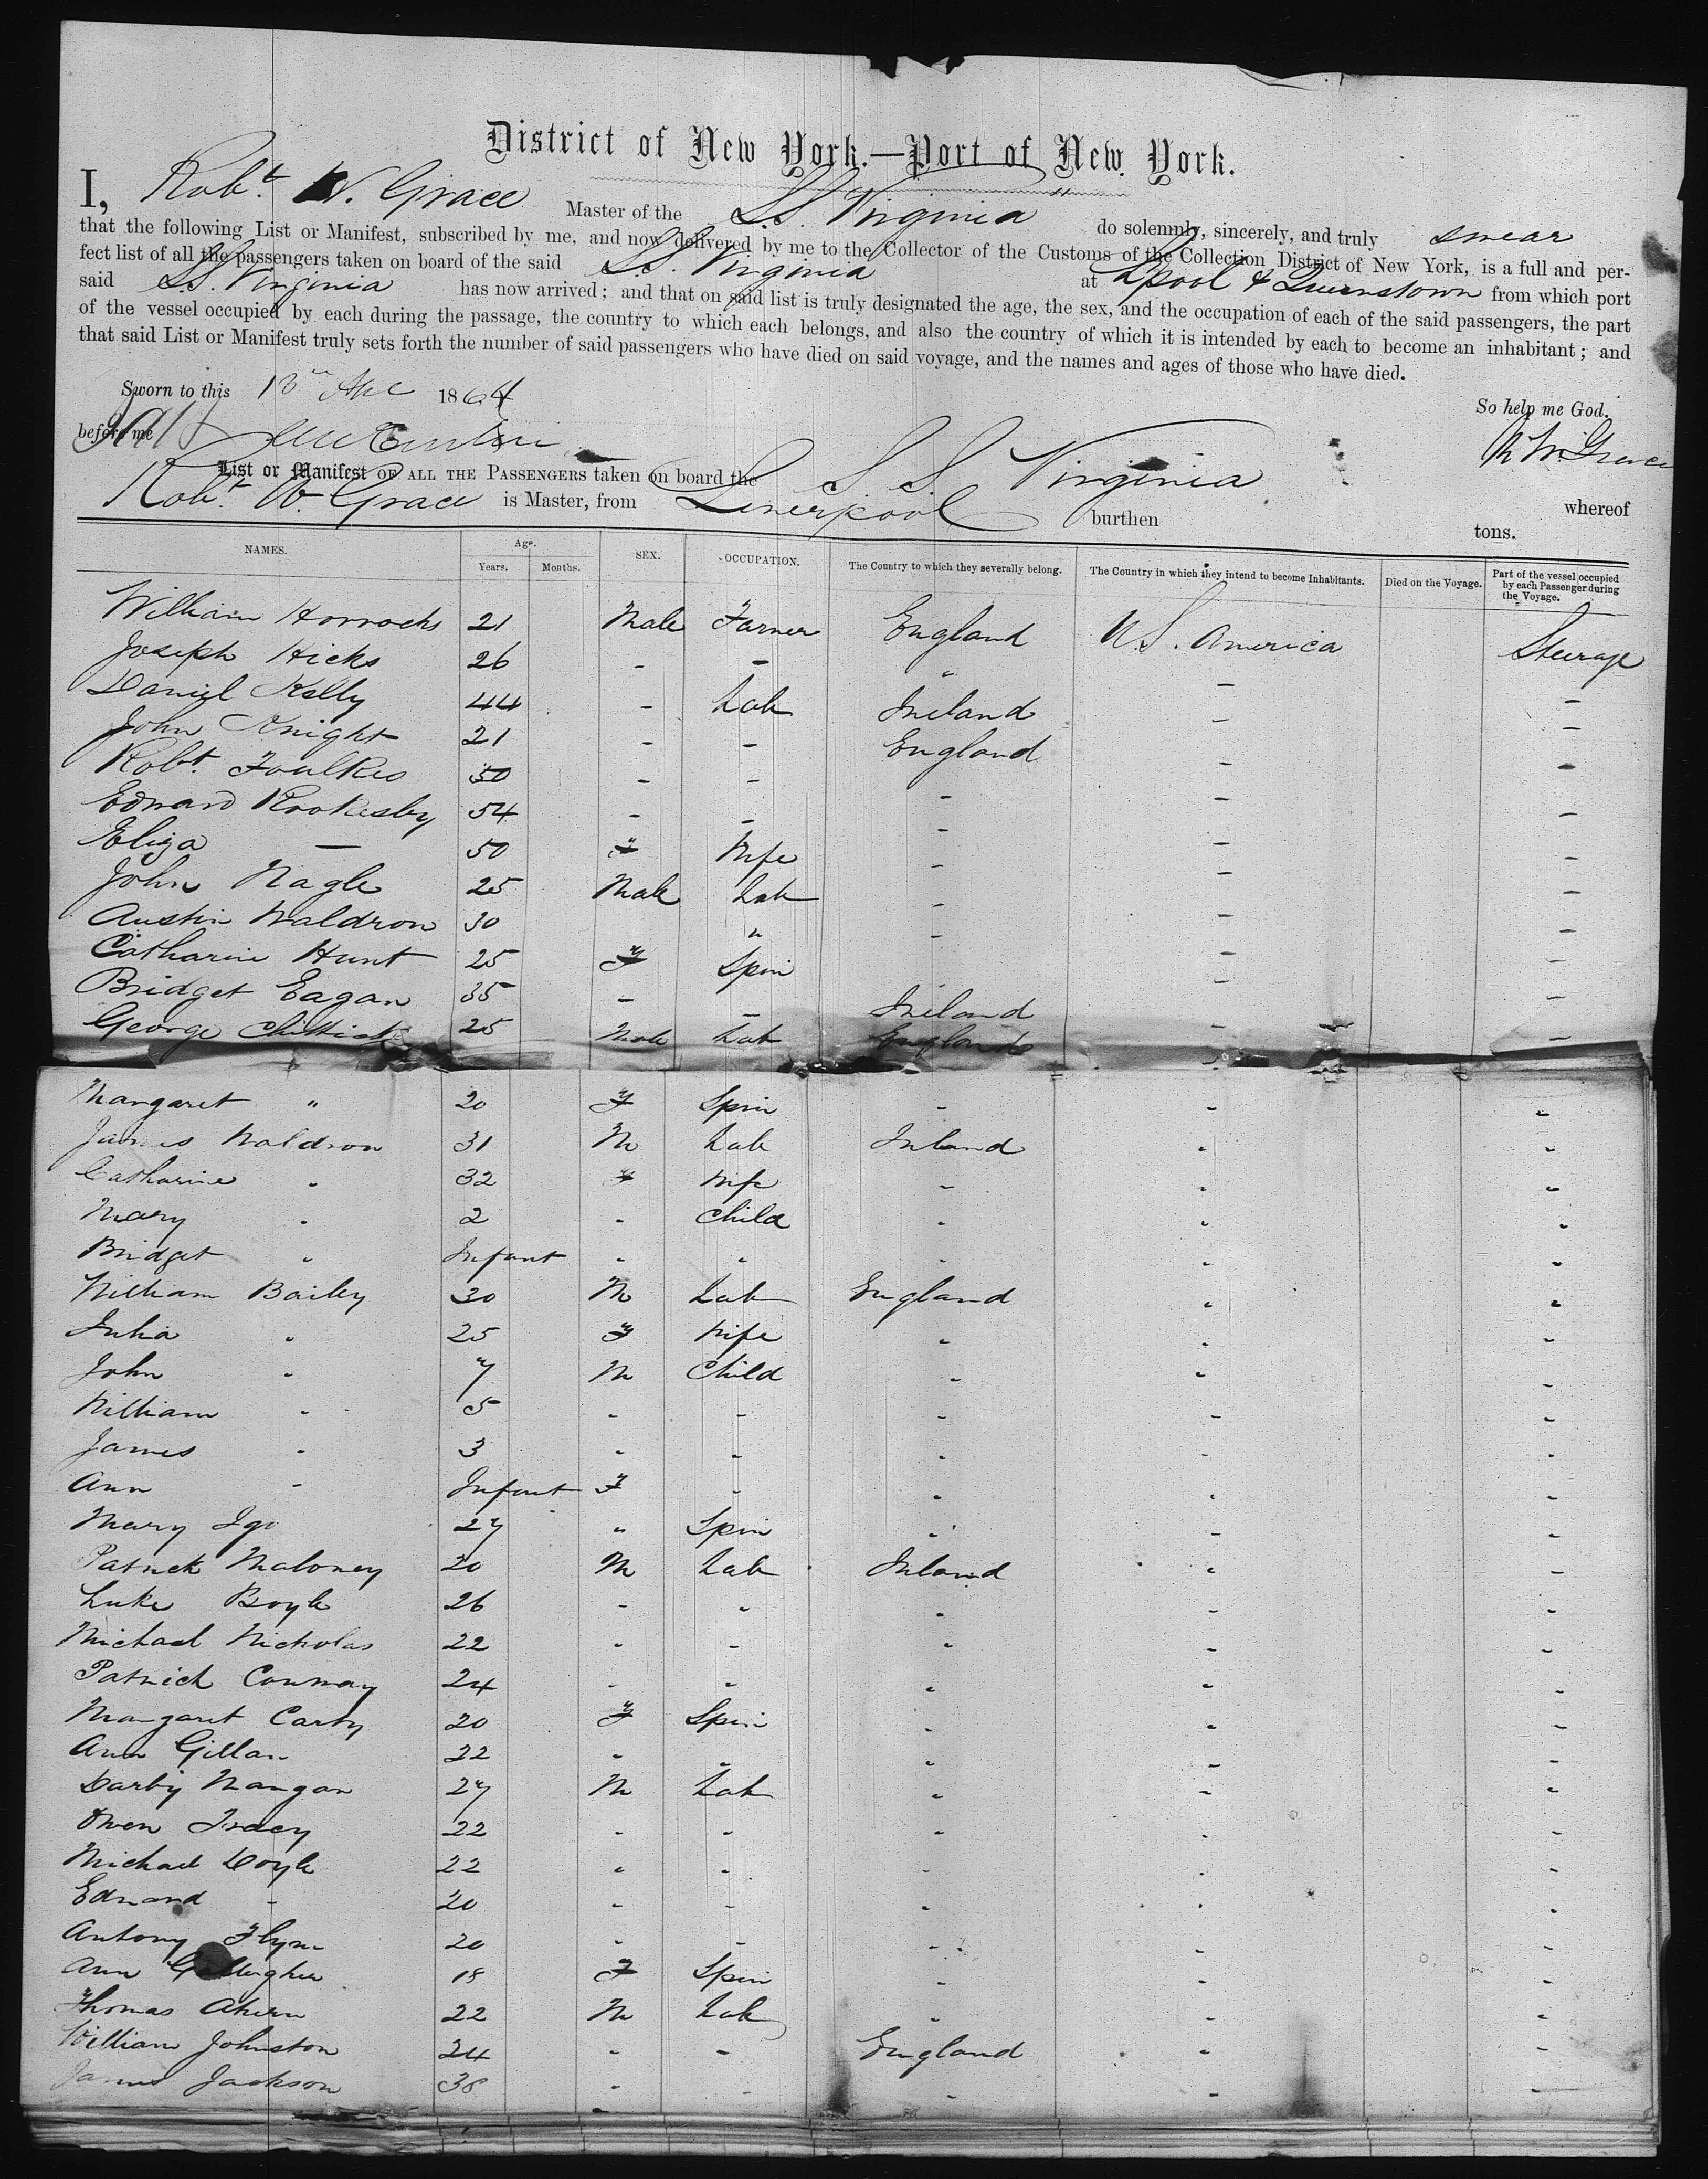 District of New York.—Port of New York.
I, Robt. W. Grace Master of the S.S. Virginia do solemnly, sincerely, and truly swear
that the following List or Manifest, subscribed by me, and now delivered by me to the Collector of the Customs of the Collection District of New York, is a full and per-
fect list of all the passengers taken on board of the said S.S. Virginia at Lpool & Queenstown from which port
said S.S. Virginia has now arrived; and that on said list is truly designated the age, the sex, and the occupation of each of the said passengers, the part
of the vessel occupied by each during the passage, the country to which each belongs, and also the country of which it is intended by each to become an inhabitant; and
that said List or Manifest truly sets forth the number of said passengers who have died on said voyage, and the names and ages of those who have died.
Sworn to this 13 1864 So help me God.
before me R W Grace
List or Manifest OF ALL THE PASSENGERS taken on board the S.S. Virginia whereof
Robt. W. Grace is Master, from Liverpool burthen tons.
NAMES. Age. Years. Months. SEX. OCCUPATION. The Country to which they severally belong. The Country in which they intend to become Inhabitants. Died on the Voyage. Part of the vessel occupied by each Passenger during the Voyage.
William Horrocks 21 Male Farmer England U.S. America Steerage
Joseph Hicks 26 - - " - -
Daniel Kelly 44 - Lab Ireland - -
John Knight 21 - - England - -
Robt. Foulkes 50 - - - - -
Edward Rookesby 54 - - - - -
Eliza — 50 F Wife - - -
John Nagle 25 Male Lab - - -
Austin Waldron 30 " - - -
Catharine Hunt 25 F Spin - -
Bridget Eagan 35 - - Ireland - -
George 25 Male Lab England - -
Margaret " 20 F Spin - - -
James Waldron 31 M Lab Ireland - -
Catharine " 32 F Wife - - -
Mary " 2 - Child - - -
Bridget " Infant - - - - -
William Bailey 30 M Lab England - -
Julia " 25 F Wife - - -
John " 7 M Child - - -
William " 5 - - - - -
James " 3 - - - - -
Ann - Infant F - - - -
Mary Igo 27 " Spin - - -
Patrick Maloney 20 M Lab Ireland - -
Luke Boyle 26 - - - - -
Michael Nicholas 22 - - - - -
Patrick Conway 24 - - - - -
Margaret Carty 20 F Spin - - -
Ann Gillan 22 - - - - -
Darby Mangan 27 M Lab - - -
Owen Tracy 22 - - - - -
Michael Doyle 22 - - - - -
Edward - 20 - - - - -
Antony Flynn 20 - - - - -
Ann Gallagher 18 F Spin - - -
Thomas Ahern 22 M Lab - - -
William Johnston 24 - - England - -
James Jackson 38 - - - - -